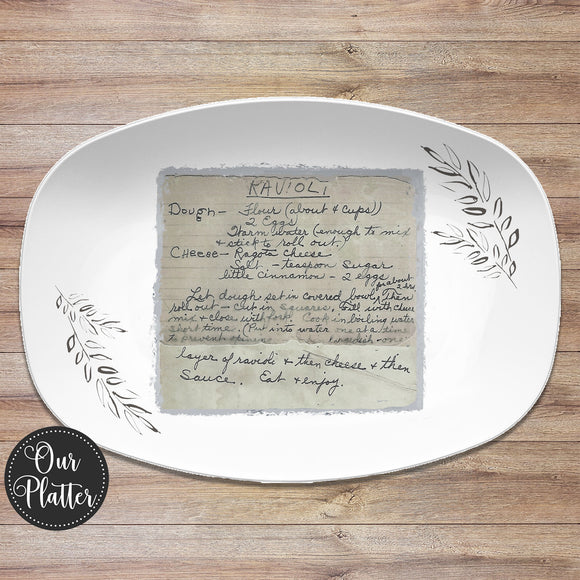 RAVIOLI
Dough - Flour (about 4 cups))
2 Eggs
Warm water (enough to mix
& stick to roll out)
CHeese - Ragota cheese
Salt - teaspoon Sugar
little Cinnamon - 2 eggs
for about
2 hrs
Let dough set in covered bowl, Then
roll out - cut in squares, fill with cheese
mix & close with fork. Cook in boiling water
short time. (Put into water one at a time
to prevent
layer of ravioli & then cheese & then
Sauce. Eat & enjoy.
Our
Platter